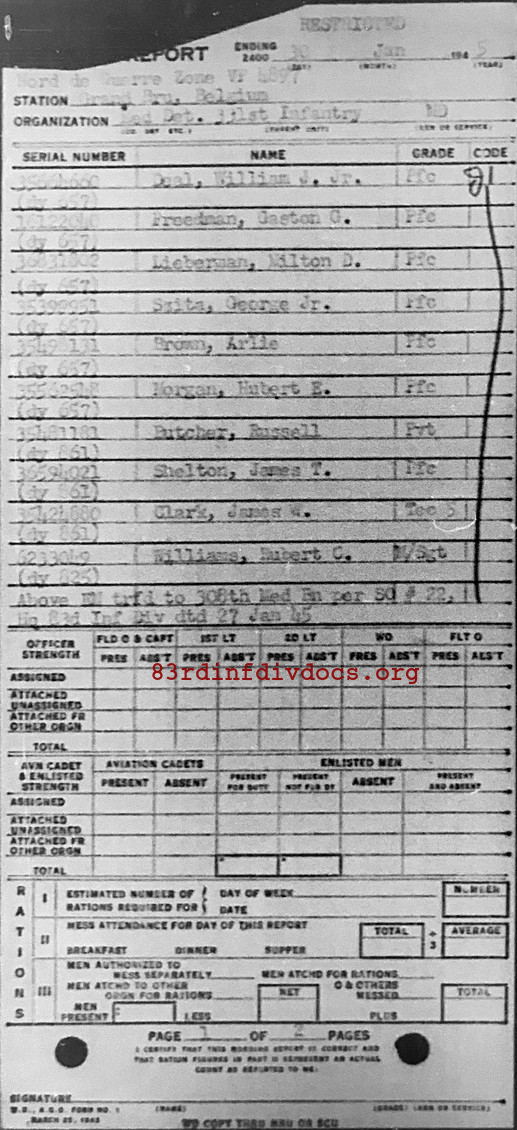 RESTRICTED
REPORT ENDING 2400 30 Jan 194 5
(DAY) (MONTH) (YEAR)
Nord de Guerre Zone VF 4897
STATION Grand Bru, Belgium
ORGANIZATION Med Det. 331st Infantry MD
(CO. DET ETC.) (PARENT UNIT) (ARM OR SERVICE)
SERIAL NUMBER NAME GRADE CODE
35604660 Doal, William J. Jr. Pfc
(dy 657)
Freedman, Gaston G. Pfc
(dy 657)
36831802 Lieberman, Milton D. Pfc
(dy 657)
35399951 Szita, George Jr. Pfc
(dy 657)
35498131 Brown, Arlie Pfc
(dy 657)
35562548 Morgan, Hubert E. Pfc
(dy 657)
35481181 Butcher, Russell Pvt
(dy 861)
36594021 Shelton, James T. Pfc
(dy 861)
35424880 Clark, James W. Tec 5
(dy 861)
6233049 Williams, Hubert C. M/Sgt
(dy 825)
Above EM trfd to 308th Med Bn per SO # 22,
Hq 83d Inf Div dtd 27 Jan 45
OFFICER STRENGTH FLD O & CAPT 1ST LT 2D LT WO FLT O
PRES ABS'T PRES ABS'T PRES ABS'T PRES ABS'T PRES ABS'T
83rdinfdivdocs.org
ASSIGNED
ATTACHED UNASSIGNED
ATTACHED FR OTHER ORGN
TOTAL
AVN CADET & ENLISTED STRENGTH AVIATION CADETS ENLISTED MEN
PRESENT ABSENT PRESENT FOR DUTY PRESENT NOT FOR DY ABSENT PRESENT AND ABSENT
ASSIGNED
ATTACHED UNASSIGNED
ATTACHED FR OTHER ORGN
TOTAL
RATIONS
I ESTIMATED NUMBER OF RATIONS REQUIRED FOR DAY OF WEEK DATE NUMBER
II MESS ATTENDANCE FOR DAY OF THIS REPORT TOTAL ÷ 3 AVERAGE
BREAKFAST DINNER SUPPER
III MEN AUTHORIZED TO MESS SEPARATELY MEN ATCHD FOR RATIONS
MEN ATCHD TO OTHER ORGN FOR RATIONS NET O & OTHERS MESSED TOTAL
MEN PRESENT LESS PLUS
PAGE 1 OF 2 PAGES
I CERTIFY THAT THIS MORNING REPORT IS CORRECT AND
THAT RATION FIGURES IN PART II REPRESENT AN ACTUAL
COUNT AS REPORTED TO ME:
SIGNATURE
W.D., A.G.O. FORM NO. 1 (NAME) (GRADE) (ARM OR SERVICE)
MARCH 25, 1943
WD COPY THRU MRU OR SCU